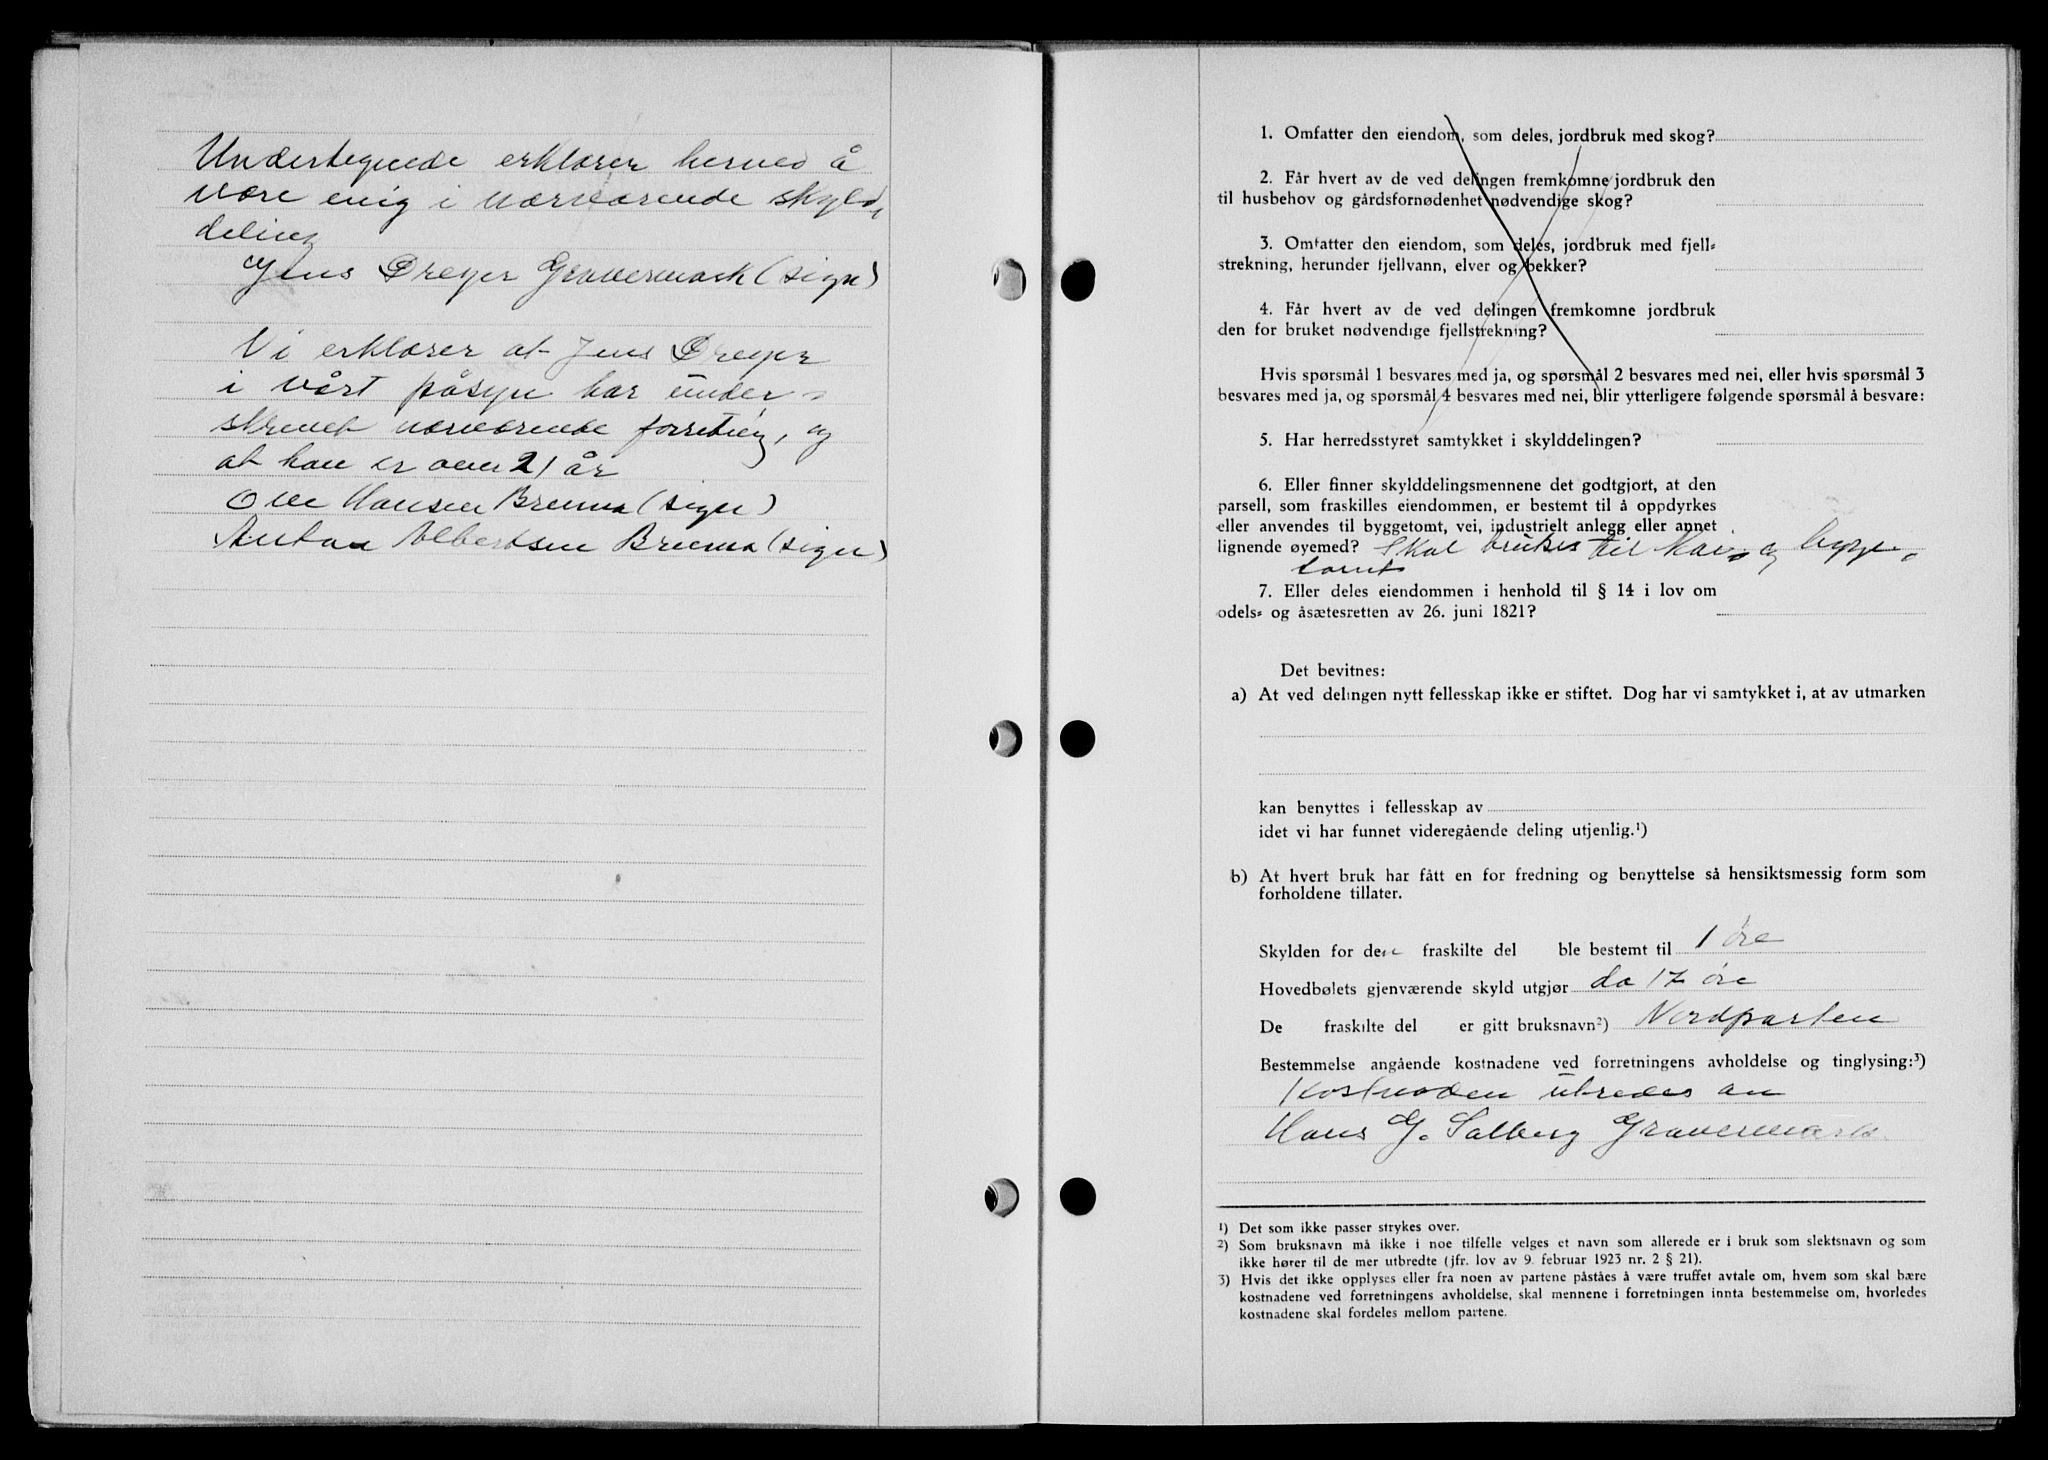 Undertegnede erklærer herved å
være enig i nærværende skyld,
deling
Jens Dreyer Gravermark (sign)
Vi erklærer at Jens Dreyer
i vårt påsyn har under-
skrevet nærværende forretning, og
at han er over 21 år
Ole Hansen Bremma (sign)
Anton Albertsen Bremma (sign)
1. Omfatter den eiendom, som deles, jordbruk med skog?
2. Får hvert av de ved delingen fremkomne jordbruk den
til husbehov og gårdsfornødenhet nødvendige skog?
3. Omfatter den eiendom, som deles, jordbruk med fjell-
strekning, herunder fjellvann, elver og bekker?
4. Får hvert av de ved delingen fremkomne jordbruk
den for bruket nødvendige fjellstrekning?
Hvis spørsmål 1 besvares med ja, og spørsmål 2 besvares med nei, eller hvis spørsmål 3
besvares med ja, og spørsmål 4 besvares med nei, blir ytterligere følgende spørsmål å besvare:
5. Har herredsstyret samtykket i skylddelingen?
6. Eller finner skylddelingsmennene det godtgjort, at den
parsell, som fraskilles eiendommen, er bestemt til å oppdyrkes
eller anvendes til byggetomt, vei, industrielt anlegg eller annet
lignende øyemed? Skal brukes til Kai- og bygge-
tomt
7. Eller deles eiendommen i henhold til § 14 i lov om
odels- og åsætesretten av 26. juni 1821?
Det bevitnes:
a) At ved delingen nytt fellesskap ikke er stiftet. Dog har vi samtykket i, at av utmarken
kan benyttes i fellesskap av
idet vi har funnet videregående deling utjenlig.¹)
b) At hvert bruk har fått en for fredning og benyttelse så hensiktsmessig form som
forholdene tillater.
Skylden for den fraskilte del ble bestemt til 1 øre
Hovedbølets gjenværende skyld utgjør do 17 øre
De fraskilte del er gitt bruksnavn²) Nordparten
Bestemmelse angående kostnadene ved forretningens avholdelse og tinglysing:³)
Kostnaden utredes av
Hans G. Salberg Gravermark
¹) Det som ikke passer strykes over.
²) Som bruksnavn må ikke i noe tilfelle velges et navn som allerede er i bruk som slektsnavn og som
ikke hører til de mer utbredte (jfr. lov av 9. februar 1923 nr. 2 § 21).
³) Hvis det ikke opplyses eller fra noen av partene påståes å være truffet avtale om, hvem som skal bære
kostnadene ved forretningens avholdelse, skal mennene i forretningen innta bestemmelse om, hvorledes
kostnadene skal fordeles mellom partene.